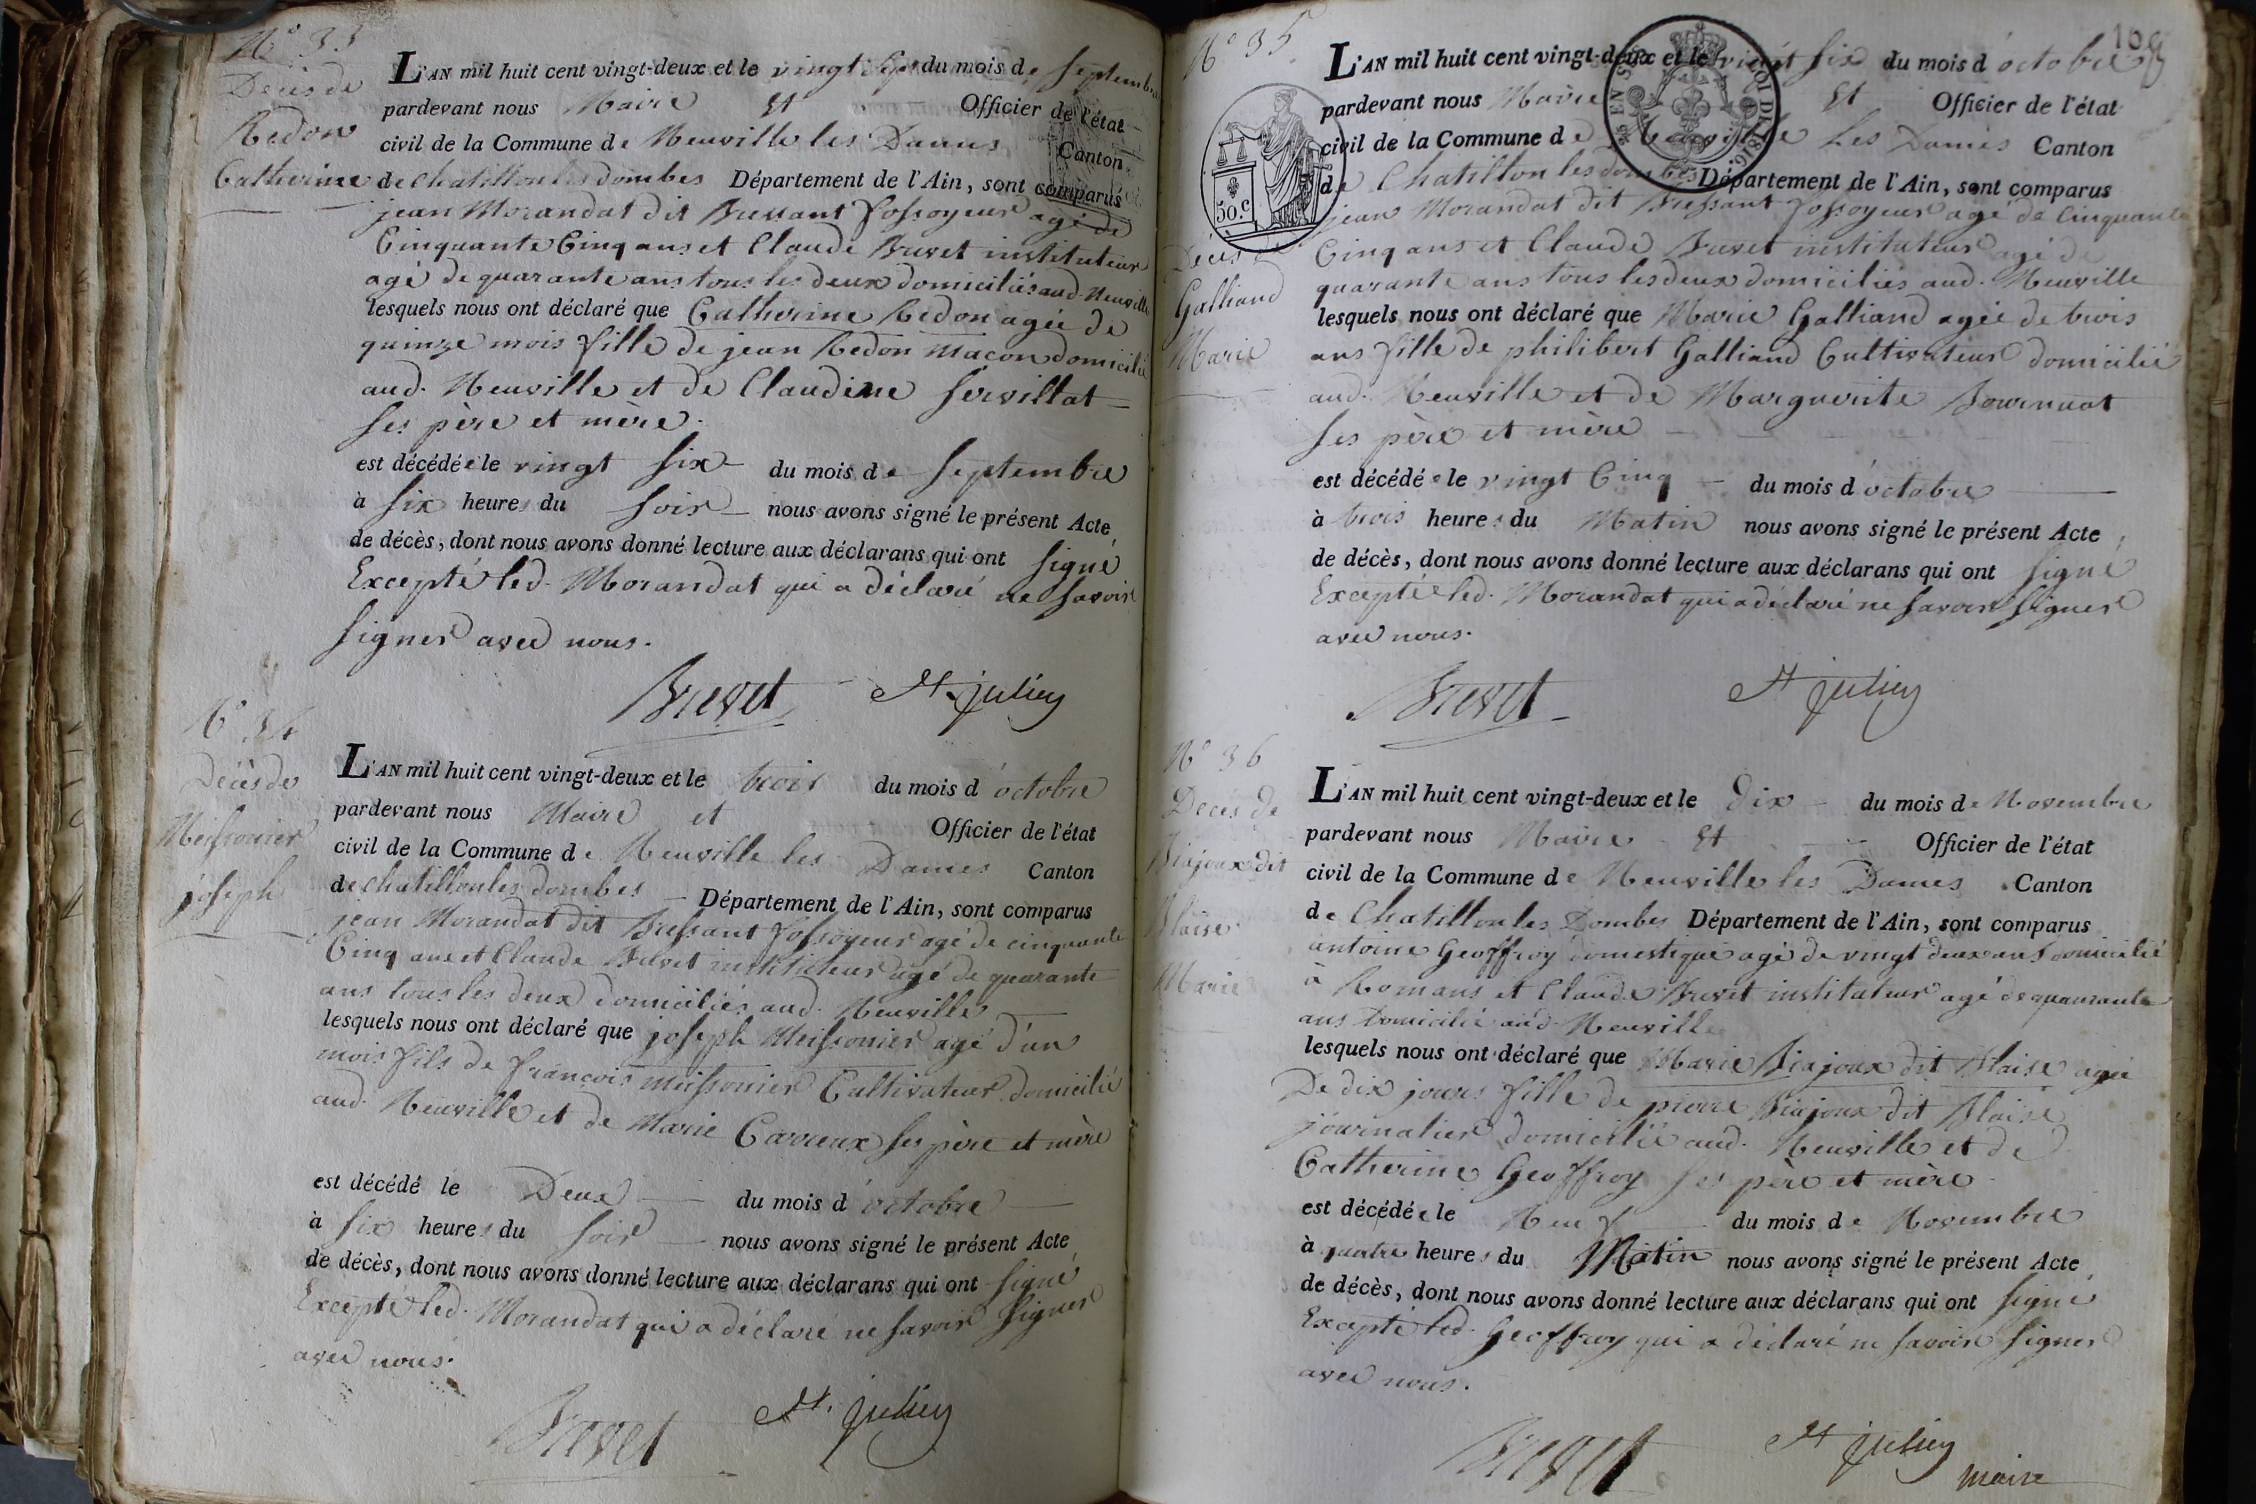 N° 33
Décès de
Redon
Catherine
L'AN mil huit cent vingt-deux et le vingt sept du mois de septembre
pardevant nous Maire Et Officier de l'état
civil de la Commune de Neuville les Dames Canton
de Chatillon les dombes Département de l'Ain, sont comparus
jean Morandat dit Bressant fossoyeur agé de
Cinquante Cinq ans et Claude Brevet instituteur
agé de quarante ans tous les deux domiciliés aud. Neuville
lesquels nous ont déclaré que Catherine Redon agée de
quinze mois fille de jean Redon Macon domicilié
aud. Neuville et de Claudine Servillat
ses père et mère.
est décédée le vingt six du mois de septembre
à six heures du soir nous avons signé le présent Acte
de décès, dont nous avons donné lecture aux déclarans qui ont signé
Excepté led. Morandat qui a déclaré ne savoir
signer avec nous.
Brevet St. julien
N° 34
Décès de
Meissonier
joseph
L'AN mil huit cent vingt-deux et le trois du mois d'octobre
pardevant nous Maire et Officier de l'état
civil de la Commune de Neuville les Dames Canton
de chatillon les dombes Département de l'Ain, sont comparus
jean Morandat dit Bressant fossoyeur agé de cinquante
Cinq ans et Claude Brevet instituteur agé de quarante
ans tous les deux domiciliés aud. Neuville
lesquels nous ont déclaré que joseph Meissonier agé d'un
mois fils de françois meissonier Cultivateur domicilié
aud. Neuville et de Marie Carreux ses père et mère
est décédé le Deux du mois d'octobre
à six heures du soir nous avons signé le présent Acte
de décès, dont nous avons donné lecture aux déclarans qui ont signé
Excepté led. Morandat qui a déclaré ne savoir signer
avec nous.
Brevet St. julien
109
N° 35
50.c
Décès
Galliand
Marie
L'AN mil huit cent vingt-deux et le vingt six du mois d'octobre
pardevant nous Maire Et Officier de l'état
civil de la Commune de Neuville les Dames Canton
de Chatillon les dombes Département de l'Ain, sont comparus
jean Morandat dit Bressant fossoyeur agé de Cinquante
Cinq ans et Claude Brevet instituteur agé de
quarante ans tous les deux domiciliés aud. Neuville
lesquels nous ont déclaré que Marie Galliand agée de trois
ans fille de philibert Galliand Cultivateur domicilié
aud. Neuville et de Marguerite Bournuat
ses père et mère
est décédée le vingt Cinq du mois d'octobre
à trois heures du Matin nous avons signé le présent Acte
de décès, dont nous avons donné lecture aux déclarans qui ont signé
Excepté led. Morandat qui a déclaré ne savoir signer
avec nous.
Brevet St julien
N° 36
Décès de
Biajoux dit
Blaise
Marie
L'AN mil huit cent vingt-deux et le dix du mois de Novembre
pardevant nous Maire Et Officier de l'état
civil de la Commune de Neuville les Dames Canton
de Chatillon les Dombes Département de l'Ain, sont comparus
antoine Geoffroy domestique agé de vingt deux ans domicilié
à Romans et Claude Brevet instituteur agé de quaurante
ans Domicilié aud. Neuville
lesquels nous ont déclaré que Marie Biajoux dit Blaise agée
De dix jours fille de pierre Biajoux dit Blaise
journalier domicilié aud. Neuville et de
Catherine Geoffroy ses père et mère
est décédée le Neuf du mois de Novembre
à quatre heures du Matin nous avons signé le présent Acte
de décès, dont nous avons donné lecture aux déclarans qui ont signé
Excepté led. Geoffroy qui a déclaré ne savoir signer
avec nous.
Brevet St julien
maire